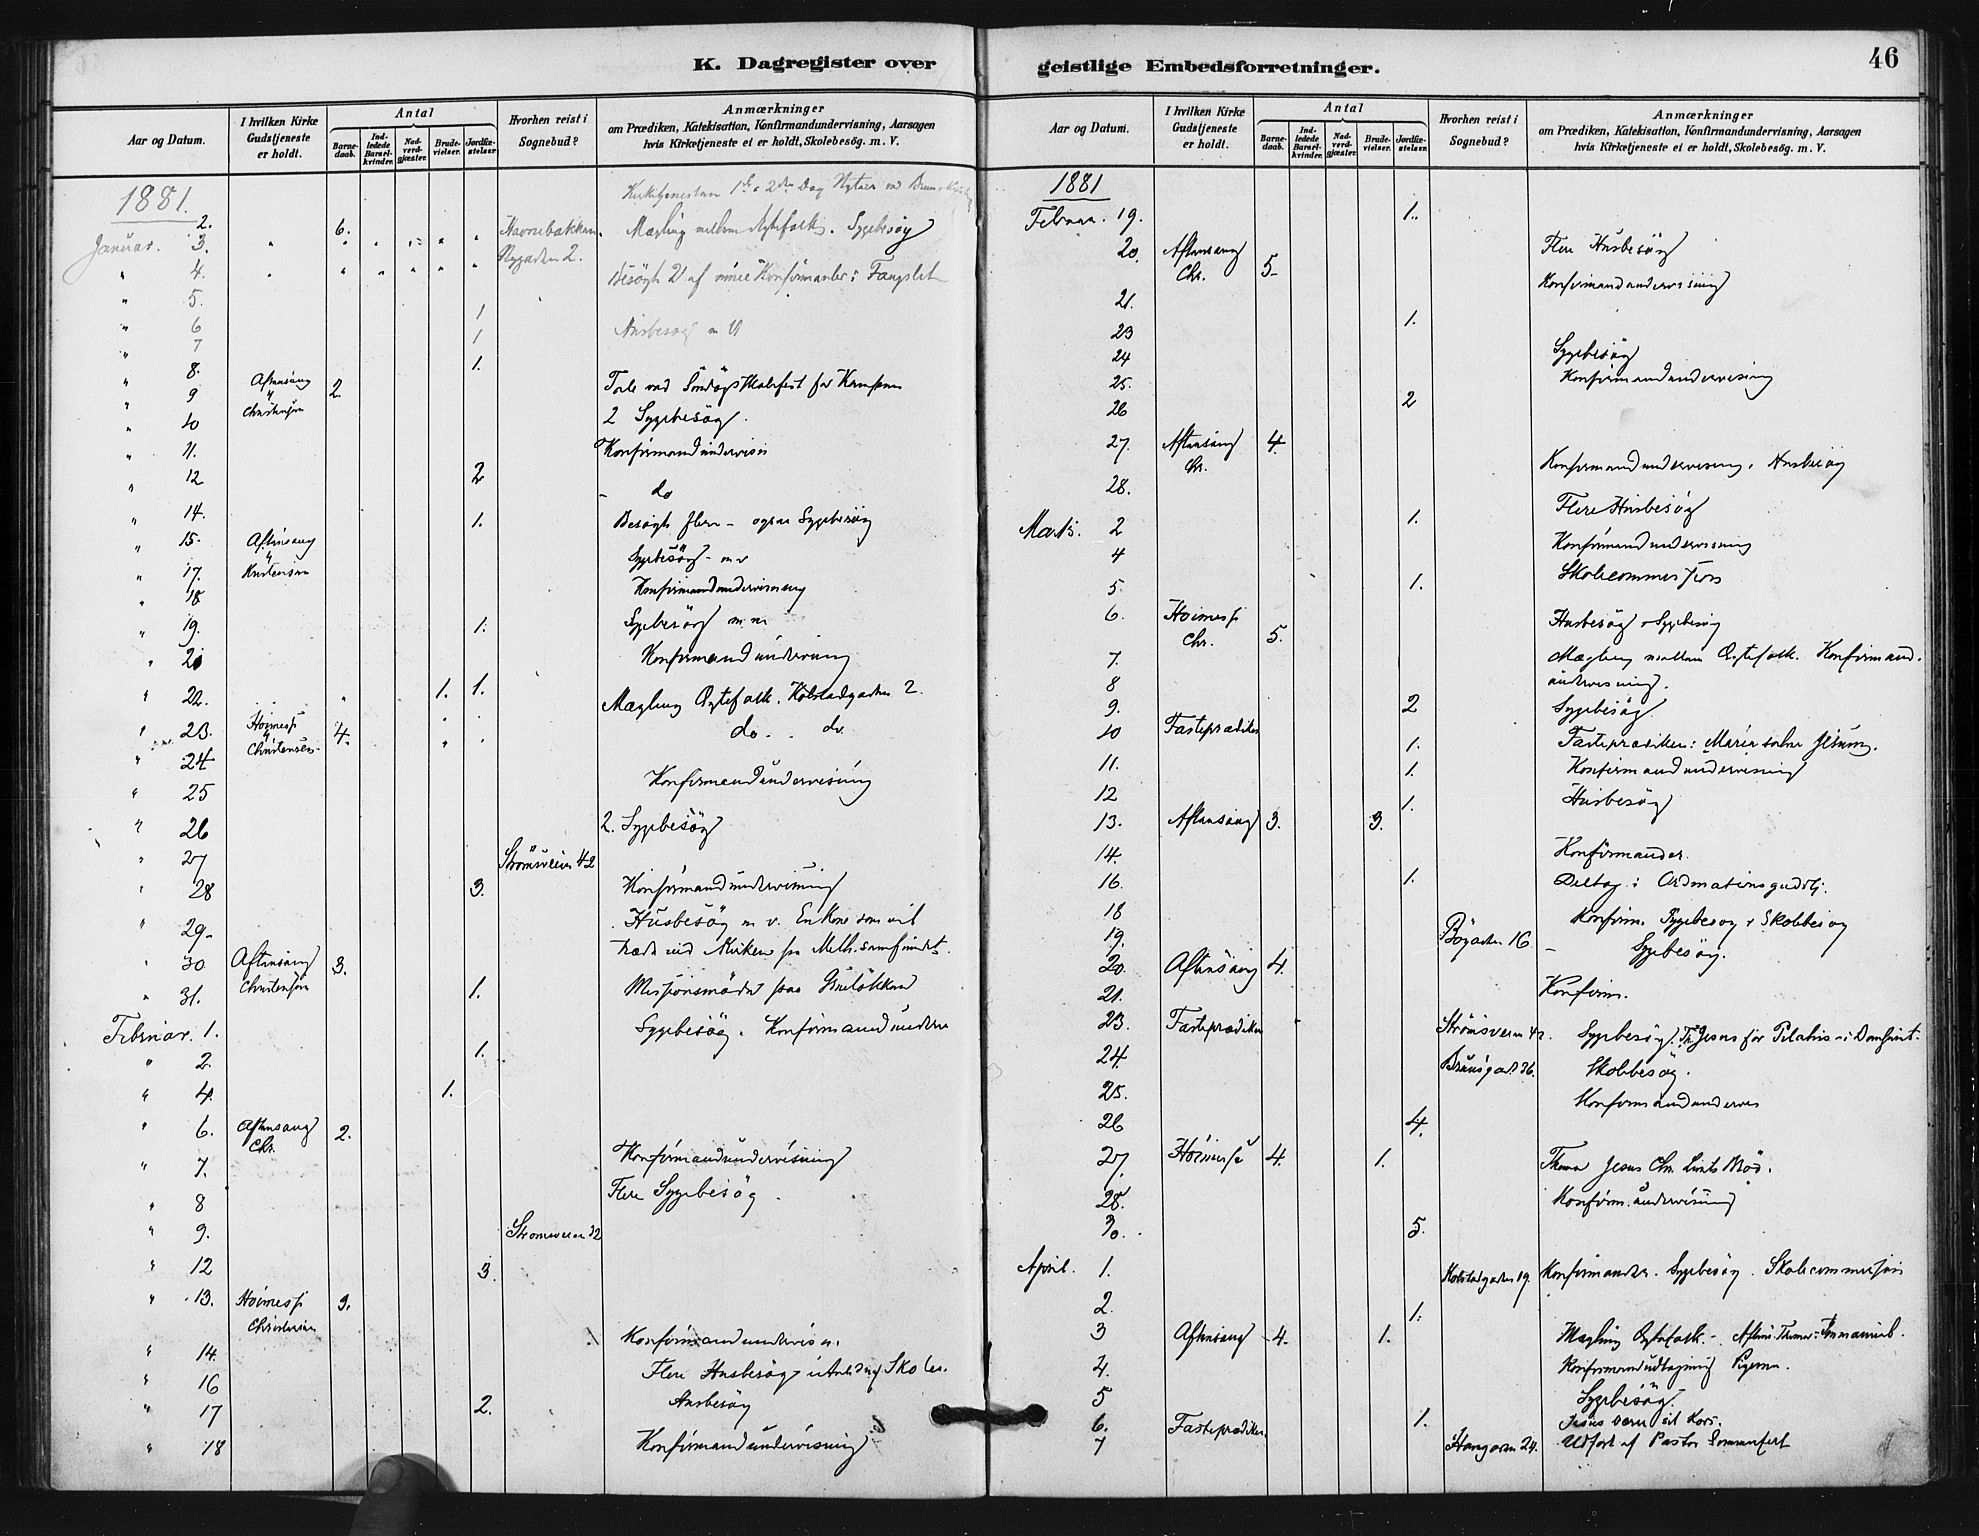 K. Dagregister over
geistlige Embedsforretninger.
46
Aar og Datum.
I hvilken Kirke Gudstjeneste er holdt.
Antal
Barne-daab.
Ind-ledede Barsel-kvinder.
Nad-verd-gjæster.
Brude-vielser.
Jordfæ-stelser.
Hvorhen reist i Sognebud?
Anmærkninger
om Prædiken, Katekisation, Konfirmandundervisning, Aarsagen
hvis Kirketjeneste ei er holdt, Skolebesög. m. V.
1881.
2. 6.
Januar. 3. Mægling mellem Ægtefolk. Sygebesög
Nygaden 2.
" 4. Besögt 21 af mine Konfirmanter i
" 5. 1
" 6 1 Husbesög
" 7
" 8. 1.
" 9 Aftensang " Christensen 2 Tale ved Söndagsskolefest for Kampens
" 10 2 Sygebesög.
" 11. Konfirmandundervisn
" 12 2 - do
" 14. 1. Besögt flere - ogsaa Sygebesög
" 15. Aftensang " Kristensen Sygebesög - m v
" 17. Konfirmandundervisning
" 18
" 19. 1. Sygebesög m. m
" 21 Konfirmandunderving
" 22. 1. 1. Mægling Ægtefolk. Kolstadgaden 2.
" 23. Höimesse " Christensen 4. do. . do.
" 24
" 25 Konfirmandundervisning
" 26 2. Sygebesög
" 27 Strömsveien 42
" 28 3. Konfirmandundervisning
" 29- Husbesög m. v. En Kone som vil
" 30 Aftensang Christensen 3. træde ud Kirken
" 31. 1. Missionsmöde paa Grülökken
Februar. 1. Sygebesög. Konfirmandunderv
" 2. 1.
" 4. 1.
" 6. Aftensang Chr. 2.
" 7. Konfirmandundervisning
" 8 Flere Sygebesög.
" 9. Strömsveien 32
" 12 3.
" 13. Höimesse Christensen 9.
" 14. Konfirmandundervisn.
" 16 Flere Husbesög
" 17 2. Husbesög
" 18 Konfirmandundervisning
Aar og Datum.
I hvilken Kirke Gudstjeneste er holdt.
Antal
Barne-daab.
Ind-ledede Barsel-kvinder.
Nad-verd-gjæster.
Brude-vielser.
Jordfæ-stelser.
Hvorhen reist i Sognebud?
Anmærkninger
om Prædiken, Katekisation, Konfirmandundervisning, Aarsagen
hvis Kirketjeneste ei er holdt, Skolebesög. m. V.
1881
Februar. 19. 1.
20. Aftensang Chr. 5- Flere Husbesög
21. Konfirmandundervisning
23 1.
24 Sygebesög
25. Konfirmandundervisning
26 2
27. Aftensang Chr. 4.
28. Konfirmandundervisning. Husbesög
Marts. 2 1. Flere Husbesög
4 Konfirmandundervisning
5. 1. Skolecommission
6. Höimesse Chr. 5. Husbesög Sygebesög
7. Mægling mellem Ægtefolk. Konfirmand.
8 undervisning.
9. 2 Sygebesög.
10 Fasteprædiken 1. Fasteprædiken: Maria salver Jesum.
11. 1. Konfirmandundervisning
12 1. Husbesög
13. Aftensang 3. 3.
14. Konfirmander.
16. 1. Deltog i Ordinationsgudstj.
18 Konfirm. Sygebesög + Skolebesög
19. Bögaden 16 - Sygebesög.
20. Aftensang 4.
21. Konfirm.
23. Fasteprædiken Strömsveien 42. Sygebesög. Jesus for Pilatus
24. Skolebesög.
25. Konfirmandunderv
26 4.
27. Höimesse 4. 1. Thema Jesus Chr. Livets Bröd.
28. Konfirm. undervisning
30. 5.
April. 1. Kolstadgaden 19. Konfirmander. Sygebesög. Skolecommission
2. 1.
3 Aftensang 4. 1. Mægling Ægtefolk.
4. Konfirmandudtagning Pigerne.
5 Sygebesög.
6. Fasteprædiken 1. Jesus bærer sit Kors.
7 24. Udfört af Pastor Sommerfelt